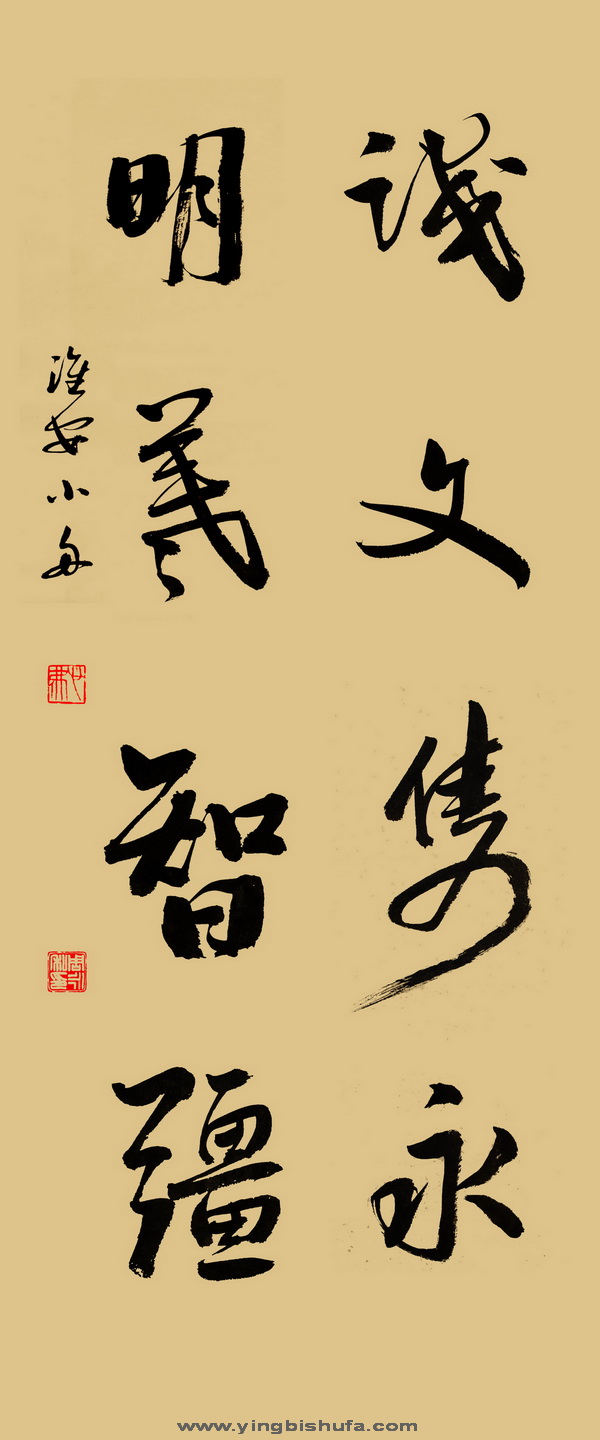 誠文雋永
明義智疆
淮安小舟
www.yingbishufa.com